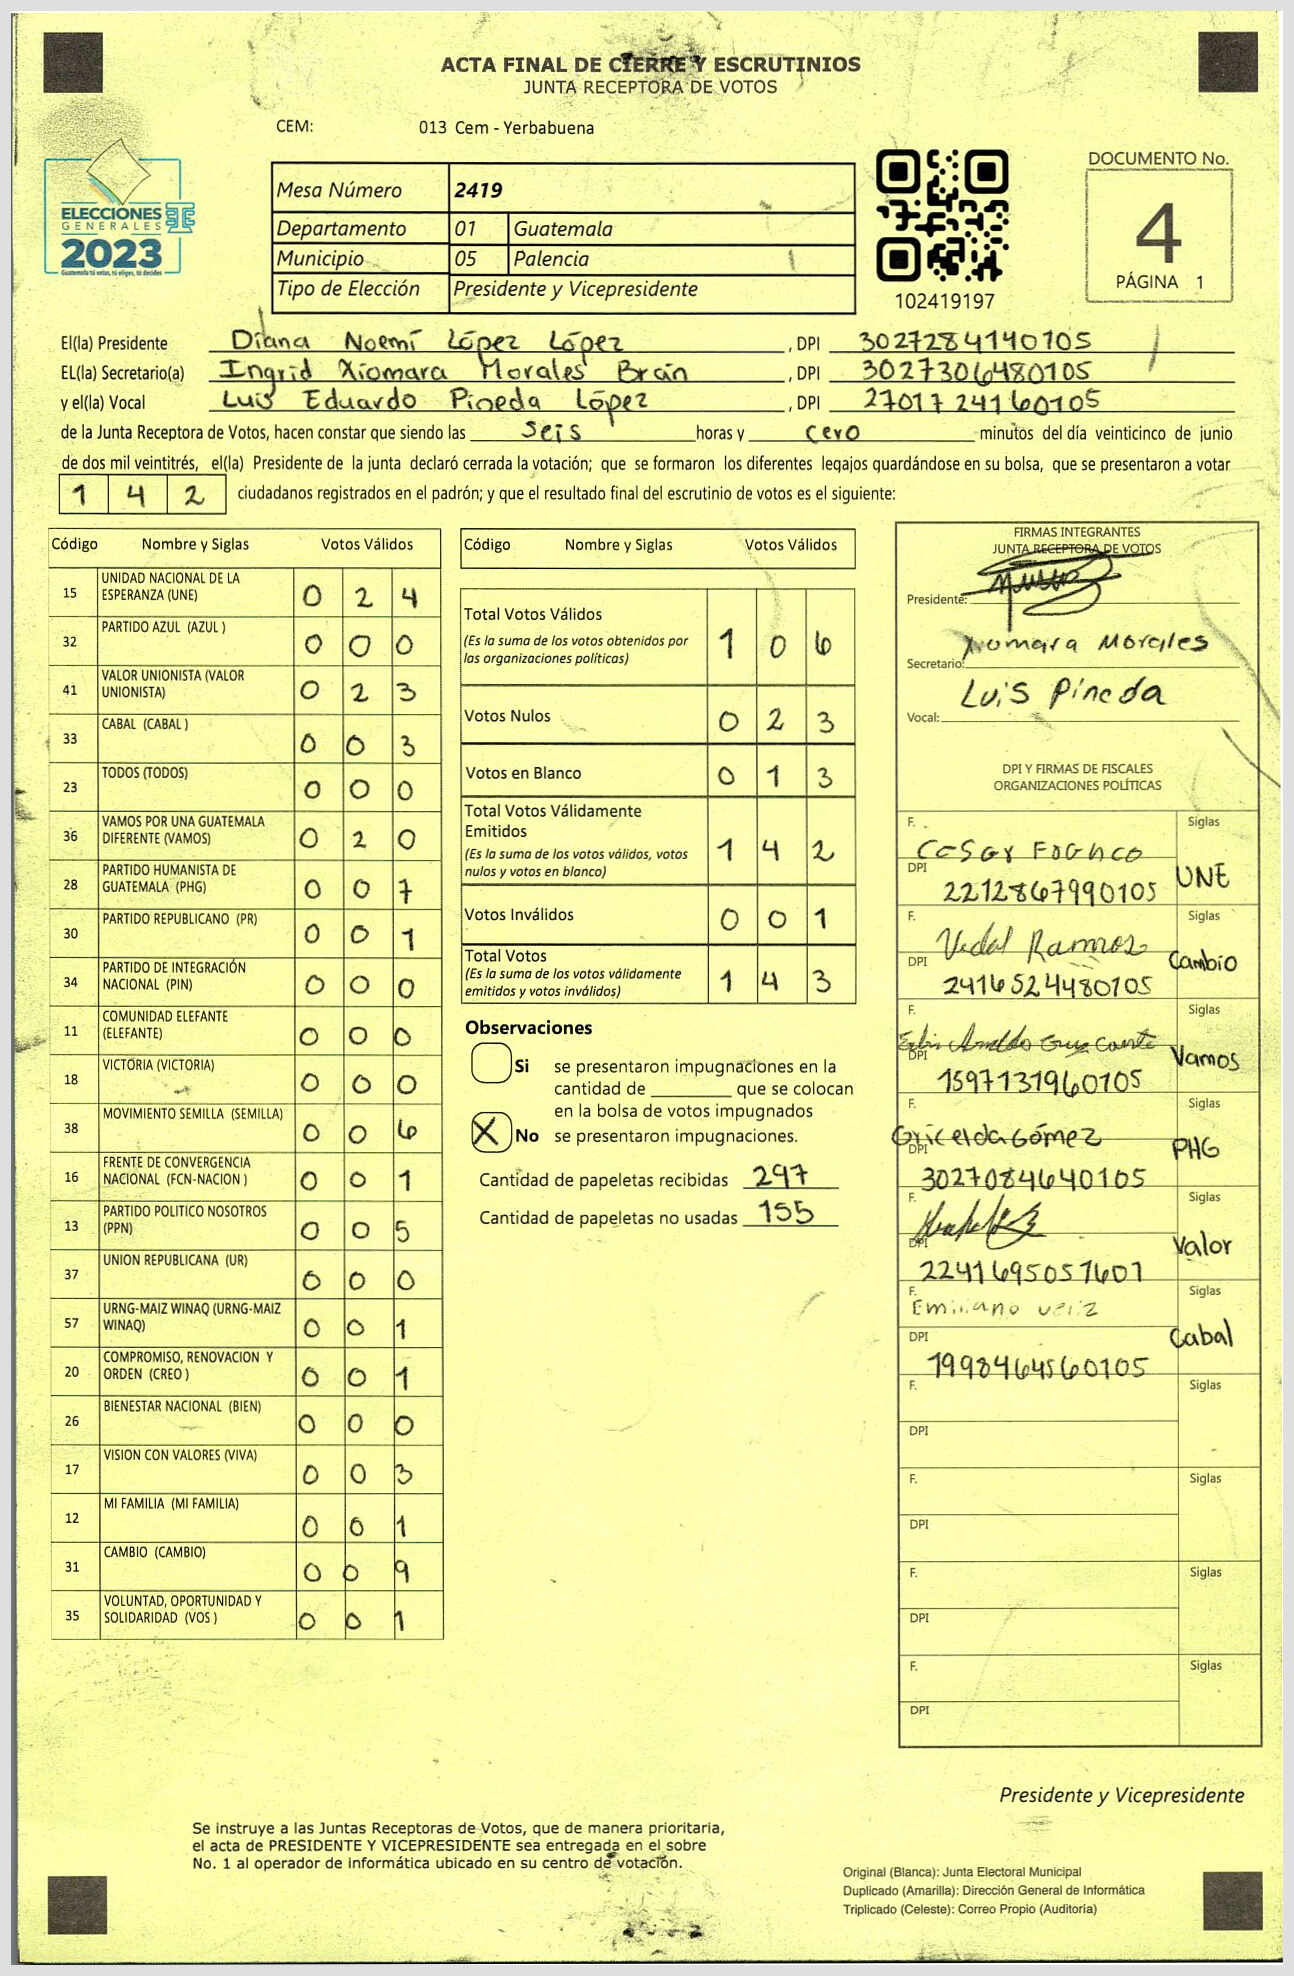 ACTA FINAL DE CIERRE Y ESCRUTINIOS
JUNTA RECEPTORA DE VOTOS
CEM: 013 Cem - Yerbabuena
ELECCIONES
GENERALES
2023
Guatemala tú votas, tú eliges, tú decides
Mesa Número 2419
Departamento 01 Guatemala
Municipio 05 Palencia
Tipo de Elección Presidente y Vicepresidente
102419197
DOCUMENTO No.
4
PÁGINA 1
El(la) Presidente Diana Noemí López López , DPI 3027284140105
EL(la) Secretario(a) Ingrid Xiomara Morales Bran , DPI 3027306480105
y el(la) Vocal Luis Eduardo Pineda López , DPI 2701724160105
de la Junta Receptora de Votos, hacen constar que siendo las seis horas y cero minutos del día veinticinco de junio
de dos mil veintitrés, el(la) Presidente de la junta declaró cerrada la votación; que se formaron los diferentes legajos guardándose en su bolsa, que se presentaron a votar
1 4 2 ciudadanos registrados en el padrón; y que el resultado final del escrutinio de votos es el siguiente:
Código Nombre y Siglas Votos Válidos
15 UNIDAD NACIONAL DE LA
ESPERANZA (UNE) 0 2 4
32 PARTIDO AZUL (AZUL ) 0 0 0
41 VALOR UNIONISTA (VALOR
UNIONISTA) 0 2 3
33 CABAL (CABAL ) 0 0 3
23 TODOS (TODOS) 0 0 0
36 VAMOS POR UNA GUATEMALA
DIFERENTE (VAMOS) 0 2 0
28 PARTIDO HUMANISTA DE
GUATEMALA (PHG) 0 0 7
30 PARTIDO REPUBLICANO (PR) 0 0 1
34 PARTIDO DE INTEGRACIÓN
NACIONAL (PIN) 0 0 0
11 COMUNIDAD ELEFANTE
(ELEFANTE) 0 0 0
18 VICTORIA (VICTORIA) 0 0 0
38 MOVIMIENTO SEMILLA (SEMILLA) 0 0 6
16 FRENTE DE CONVERGENCIA
NACIONAL (FCN-NACION ) 0 0 1
13 PARTIDO POLITICO NOSOTROS
(PPN) 0 0 5
37 UNION REPUBLICANA (UR) 0 0 0
57 URNG-MAIZ WINAQ (URNG-MAIZ
WINAQ) 0 0 1
20 COMPROMISO, RENOVACION Y
ORDEN (CREO ) 0 0 1
26 BIENESTAR NACIONAL (BIEN) 0 0 0
17 VISION CON VALORES (VIVA) 0 0 3
12 MI FAMILIA (MI FAMILIA) 0 0 1
31 CAMBIO (CAMBIO) 0 0 9
35 VOLUNTAD, OPORTUNIDAD Y
SOLIDARIDAD (VOS ) 0 0 1
Código Nombre y Siglas Votos Válidos
Total Votos Válidos
(Es la suma de los votos obtenidos por
las organizaciones políticas) 1 0 6
Votos Nulos 0 2 3
Votos en Blanco 0 1 3
Total Votos Válidamente
Emitidos
(Es la suma de los votos válidos, votos
nulos y votos en blanco) 1 4 2
Votos Inválidos 0 0 1
Total Votos
(Es la suma de los votos válidamente
emitidos y votos inválidos) 1 4 3
Observaciones
Si se presentaron impugnaciones en la
cantidad de ________ que se colocan
en la bolsa de votos impugnados
X No se presentaron impugnaciones.
Cantidad de papeletas recibidas 297
Cantidad de papeletas no usadas 155
FIRMAS INTEGRANTES
JUNTA RECEPTORA DE VOTOS
Presidente:
Xiomara Morales
Secretario:
Luis Pineda
Vocal:
DPI Y FIRMAS DE FISCALES
ORGANIZACIONES POLÍTICAS
F. Siglas
Cesar Franco
DPI 2212867990105 UNE
F. Siglas
Vidal Ramos
DPI 2416524480105 Cambio
F. Siglas
DPI 1597131960105 Vamos
F. Siglas
Gricelda Gómez
DPI 3027084640105 PHG
F. Siglas
DPI 2241695051601 Valor
F. Siglas
Emiliano Veliz
DPI 1998464560105 Cabal
F. Siglas
DPI
F. Siglas
DPI
F. Siglas
DPI
F. Siglas
DPI
Presidente y Vicepresidente
Se instruye a las Juntas Receptoras de Votos, que de manera prioritaria,
el acta de PRESIDENTE Y VICEPRESIDENTE sea entregada en el sobre
No. 1 al operador de informática ubicado en su centro de votación.
Original (Blanca): Junta Electoral Municipal
Duplicado (Amarilla): Dirección General de Informática
Triplicado (Celeste): Correo Propio (Auditoría)